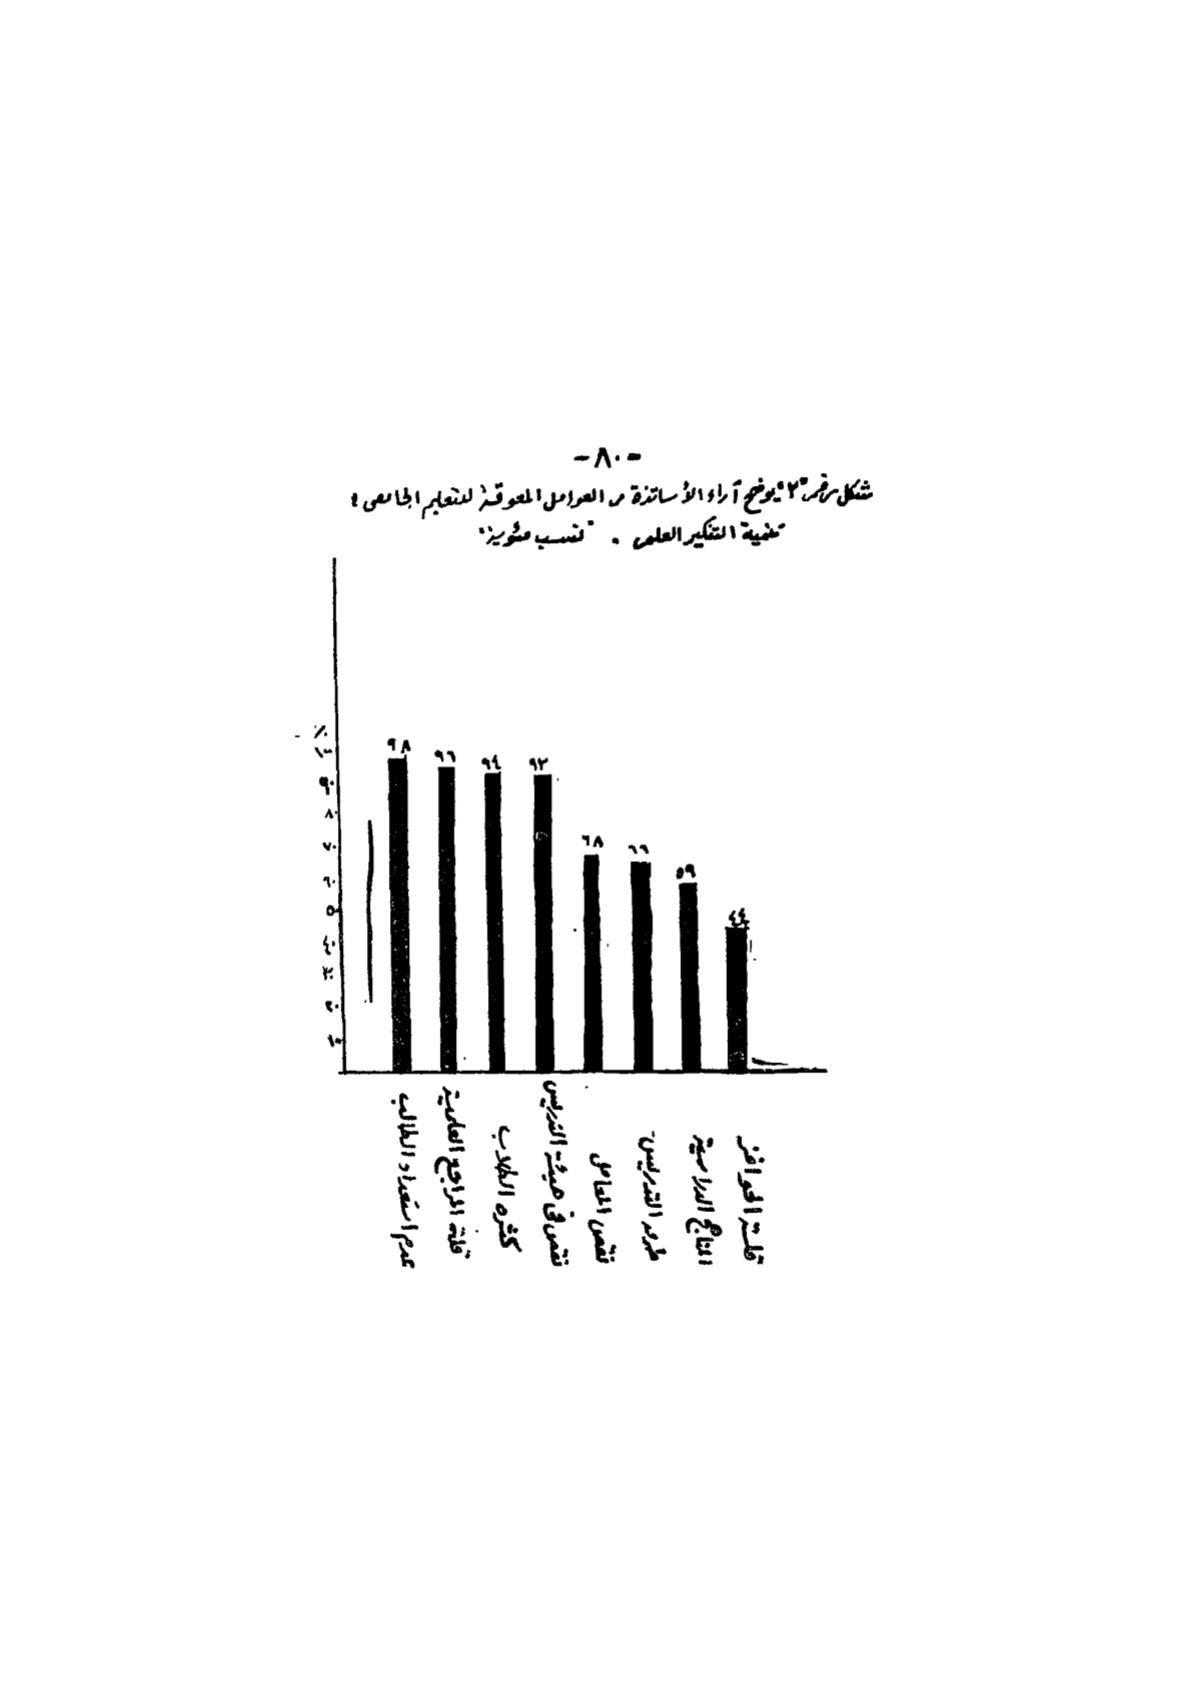 -٨٠-
شكل رقم "٢" يوضح آراء الأساتذة من العوامل المعوقة للتعليم الجامعى
تنمية التفكير العلمى . "نسب مئوية"
٪
٩٨
٩٦
٩٤
٩٢
٦٨
٦٦
٥٩
٤٤
٩٠
٨٠
٧٠
٦٠
٥٠
٤٠
٣٠
٢٠
١٠
عدم استعداد الطالب
قلة المراجع العلمية
كثره الطلاب
نقص فى هيئة التدريس
نقص المعامل
طرق التدريس
المناهج الدراسية
قلة الحوافز